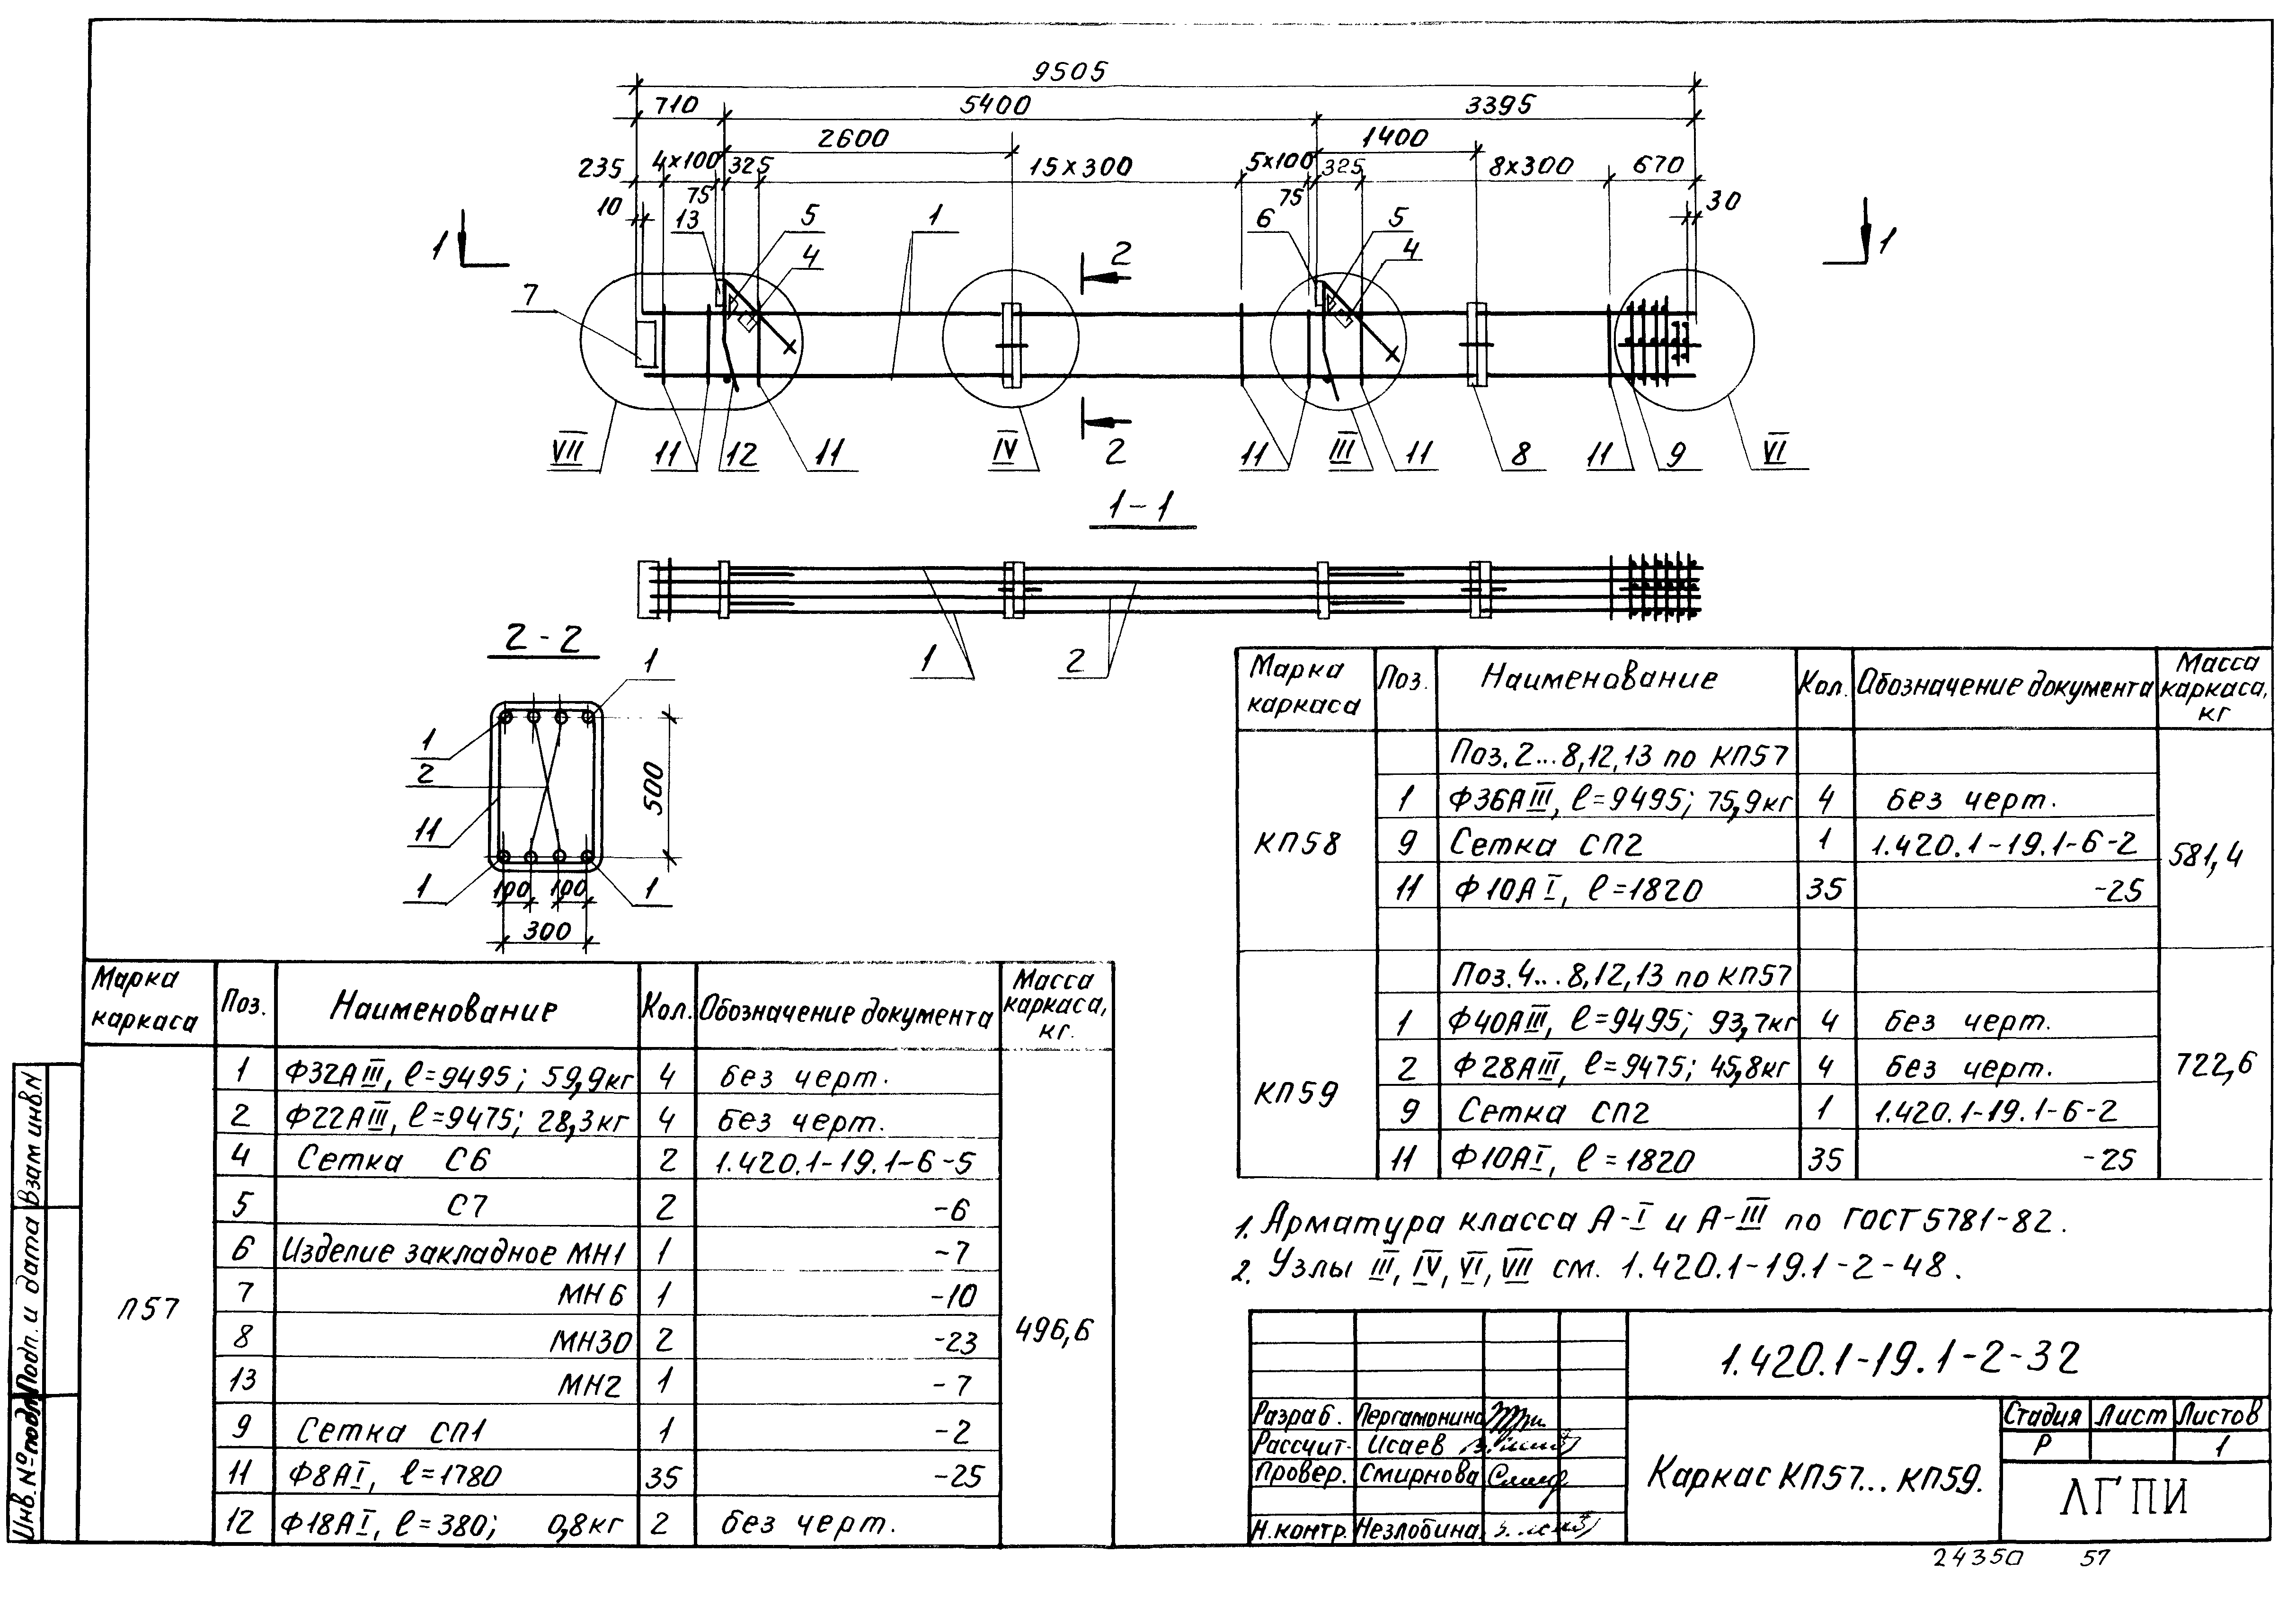 9505
710 5400 3395
2600 1400
235 4×100 325 15×300 5×100 325 8×300 670
10 75 75 30
13 5 1 6 5
1 4 2 4 1
7
VII 11 12 11 IV 2 11 III 11 8 11 9 VI
1-1
1 2
2-2
1
1
2
500
11
1 100 100 1
300
Марка каркаса Поз. Наименование Кол. Обозначение документа Масса каркаса, кг
КП58 581,4
Поз.2...8,12,13 по КП57
1 Ф36АIII, ℓ=9495; 75,9кг 4 без черт.
9 Сетка СП2 1 1.420.1-19.1-6-2
11 Ф10АI, ℓ=1820 35 -25
КП59 722,6
Поз.4...8,12,13 по КП57
1 Ф40АIII, ℓ=9495; 93,7кг 4 без черт.
2 Ф28АIII, ℓ=9475; 45,8кг 4 без черт.
9 Сетка СП2 1 1.420.1-19.1-6-2
11 Ф10АI, ℓ=1820 35 -25
Марка каркаса Поз. Наименование Кол. Обозначение документа Масса каркаса, кг.
П57 496,6
1 Ф32АIII, ℓ=9495; 59,9кг 4 без черт.
2 Ф22АIII, ℓ=9475; 28,3кг 4 без черт.
4 Сетка С6 2 1.420.1-19.1-6-5
5 С7 2 -6
6 Изделие закладное МН1 1 -7
7 МН6 1 -10
8 МН30 2 -23
13 МН2 1 -7
9 Сетка СП1 1 -2
11 Ф8АI, ℓ=1780 35 -25
12 Ф18АI, ℓ=380; 0,8кг 2 без черт.
1. Арматура класса А-I и А-III по ГОСТ 5781-82.
2. Узлы III, IV, VI, VII см. 1.420.1-19.1-2-48.
1.420.1-19.1-2-32
Разраб. Пергамонино
Рассчит. Исаев
Провер. Смирнова
Н.контр. Незлобина
Каркас КП57...КП59.
Стадия Лист Листов
Р 1
ЛГПИ
24350 57
Взам инв.N
Подп. и дата
Инв. №подл.